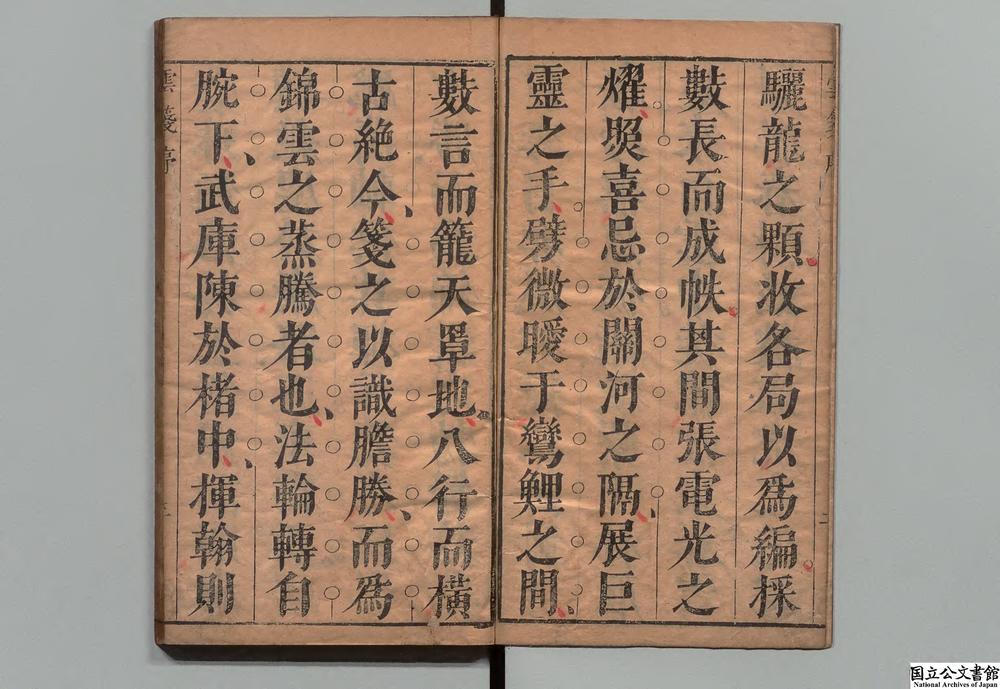 驪龍之顆收各局以爲編採
數長而成帙其間張電光之
燿煚喜忌於關河之隔展巨
靈之手劈微曖于鸞鯉之間
數言而籠天罩地八行而橫
古絶今箋之以識膽勝而爲
錦雲之蒸騰者也法輪轉自
腕下武庫陳於楮中揮翰則
雲箋序
国立公文書館
National Archives of Japan